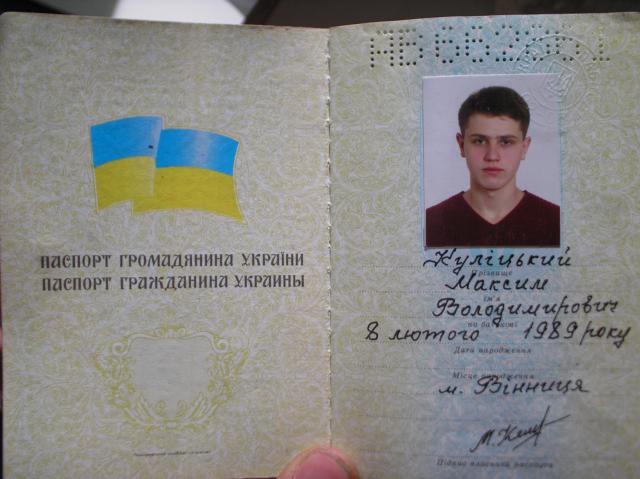 ПАСПОРТ ГРОМАДЯНИНА УКРАЇНИ
ПАСПОРТ ГРАЖДАНИНА УКРАИНЫ
Куліцький
Прізвище
Максим
Ім'я
Володимирович
по батькові
8 лютого 1989 року
Дата народження
Місце народження
м. Вінниця
Підпис власника паспорта